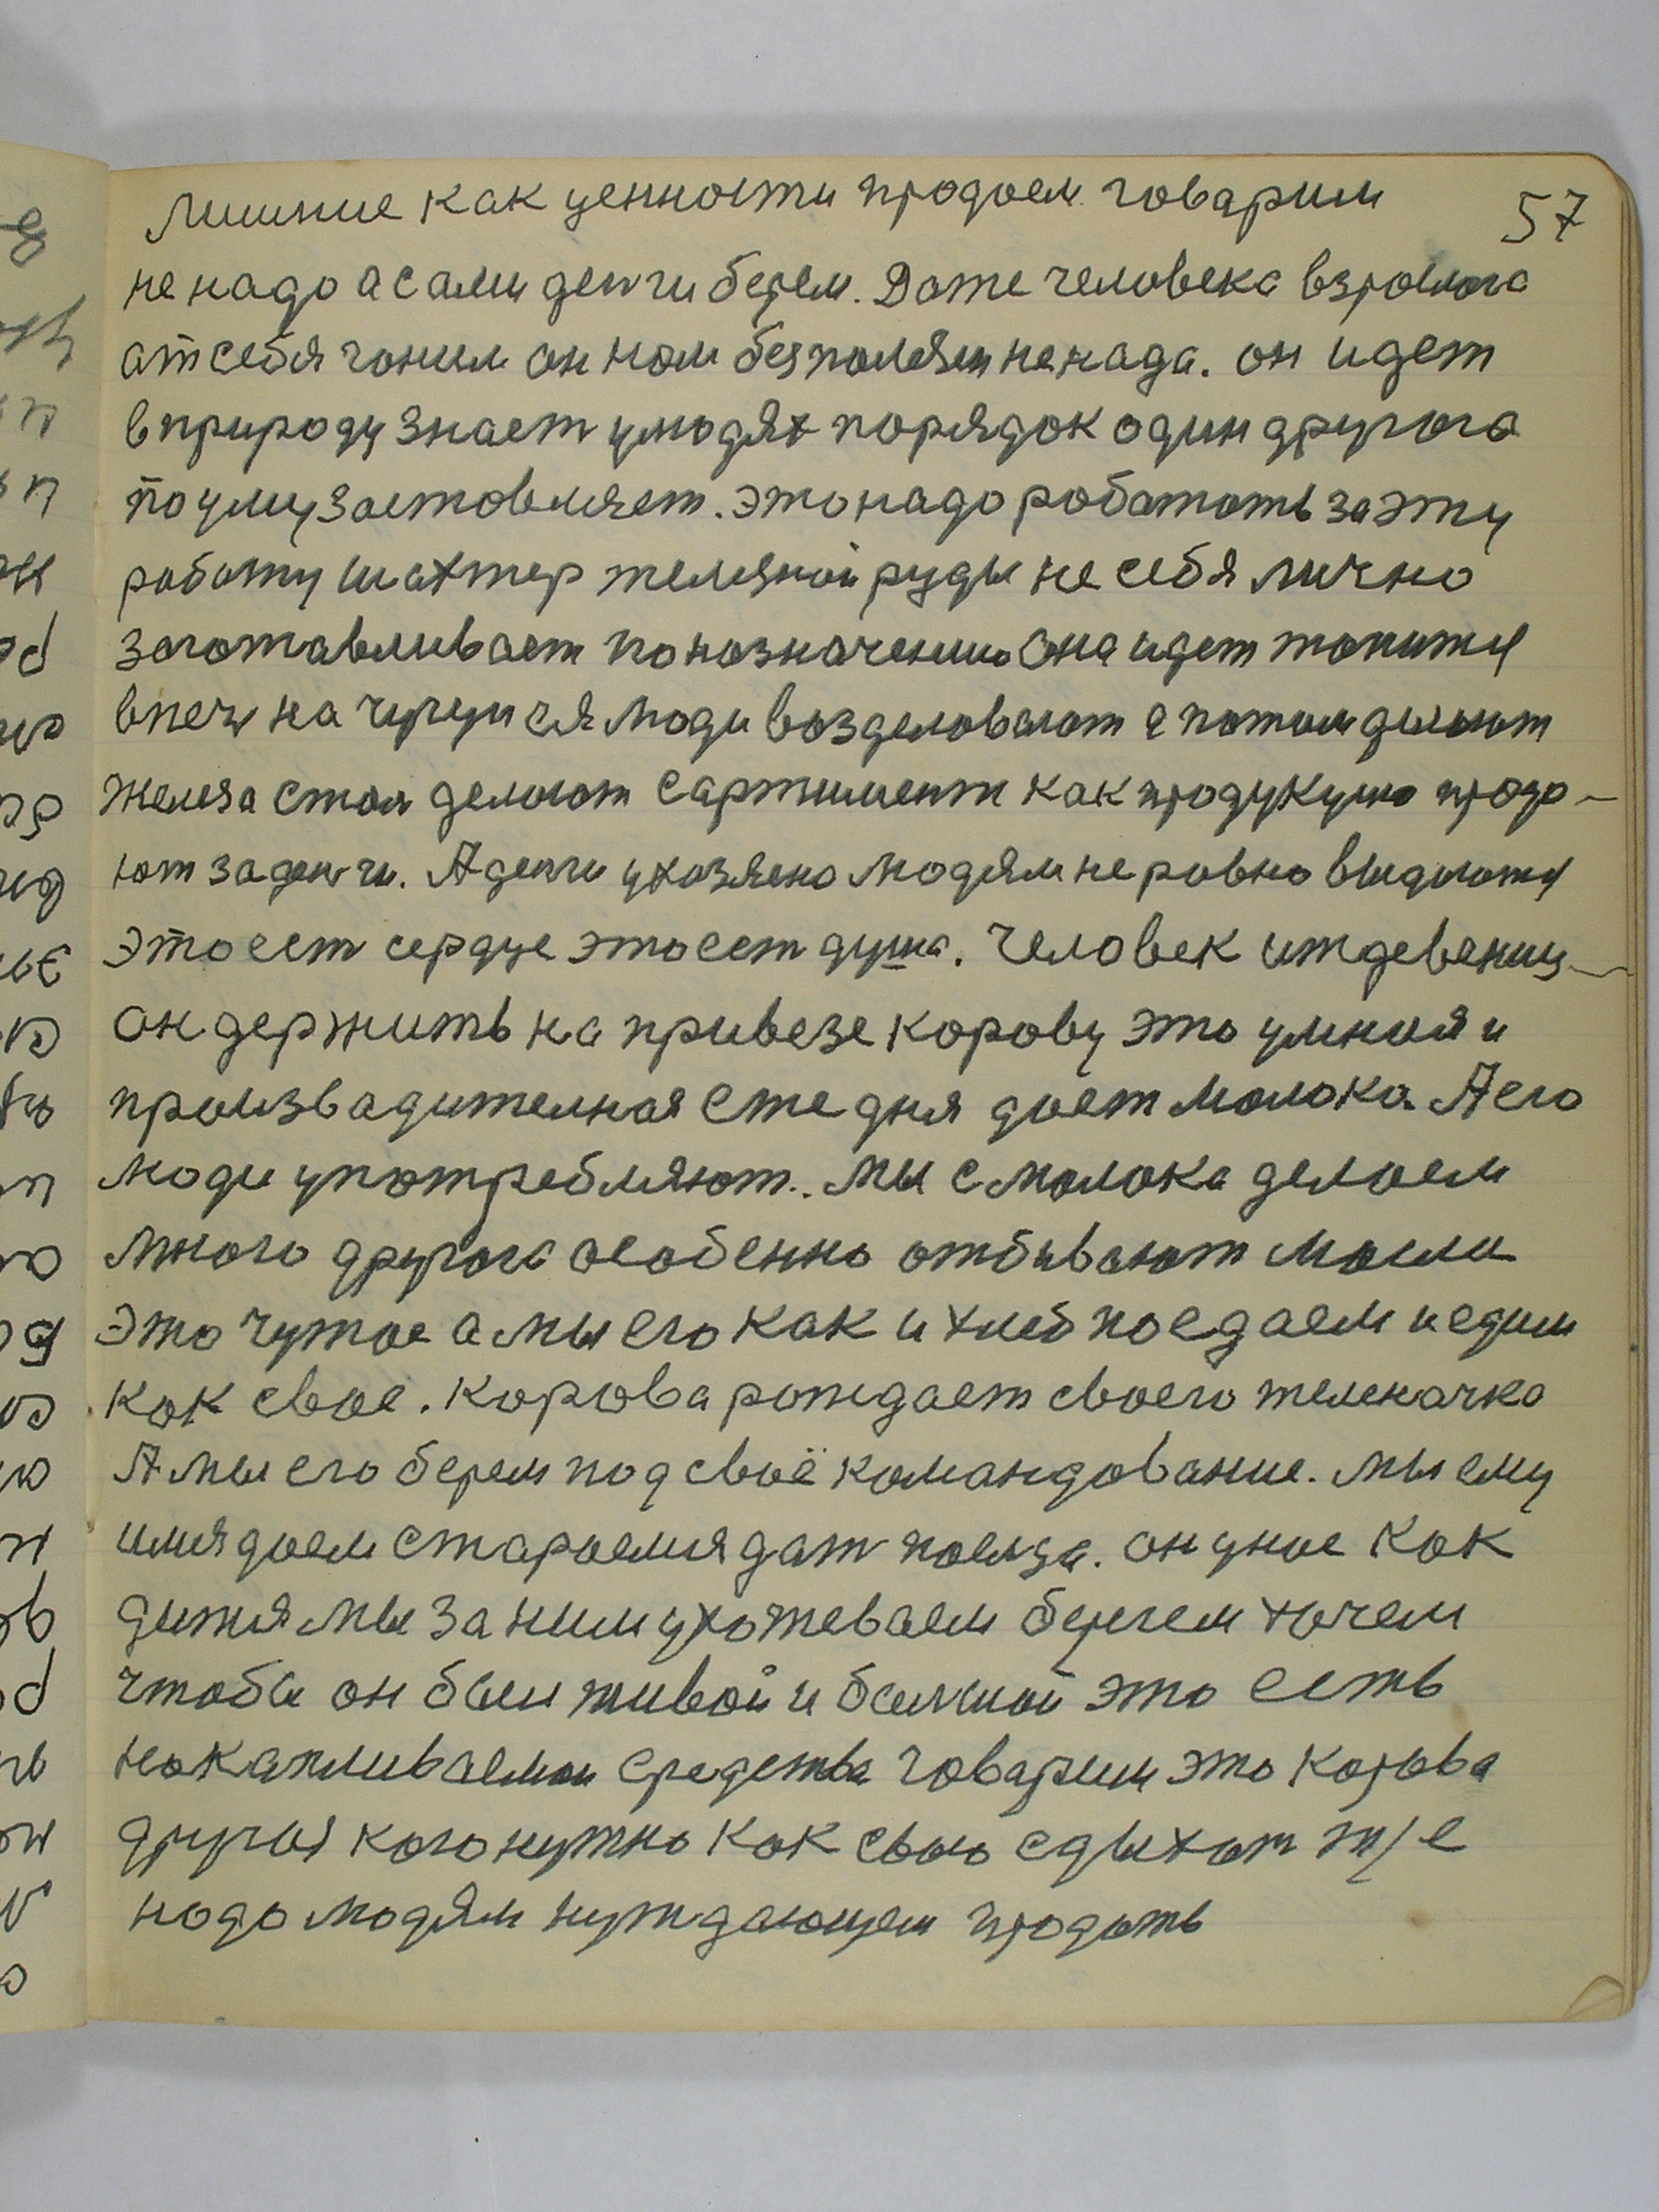 57
Лишние как ценности продоем говарим
не надо а сами денги берем. Доже человека взрослога
ат себя гоним он нам безполезен не нада. он идет
в природу знает у людях порядок один другога
по уму заставляет. Это надо роботать за эту
работу шахтер железной руды не себя лично
заготавливает по назначению она идет топится
в печ на чугун ея люди возделовают а потом делают
железа стал делают сартимент как продукцию продо-
ют за денги. А денги у хозяено людям не ровно выдаются
это ест сердце это ест душа. Человек иждевениц
он держить на привезе корову это умная и
производителная еже дня дает молока. А его
люди употребляют.. мы с молока делоем
много другога особенно отбивают масла
это чужое а мы его как и хлеб поедаем и едим
как свое. корова рождает своего теленачка
А мы его берем под своё командование. мы ему
имя даем стараемся дат полза. он уное как
дитя мы за ним ухожеваем берегем хочем
чтобы он был живой и болшой это есть
накапливаемаи средства говарим это корова
другая кого нужно как свою сдыхат т/е
надо людям нуждающем продать